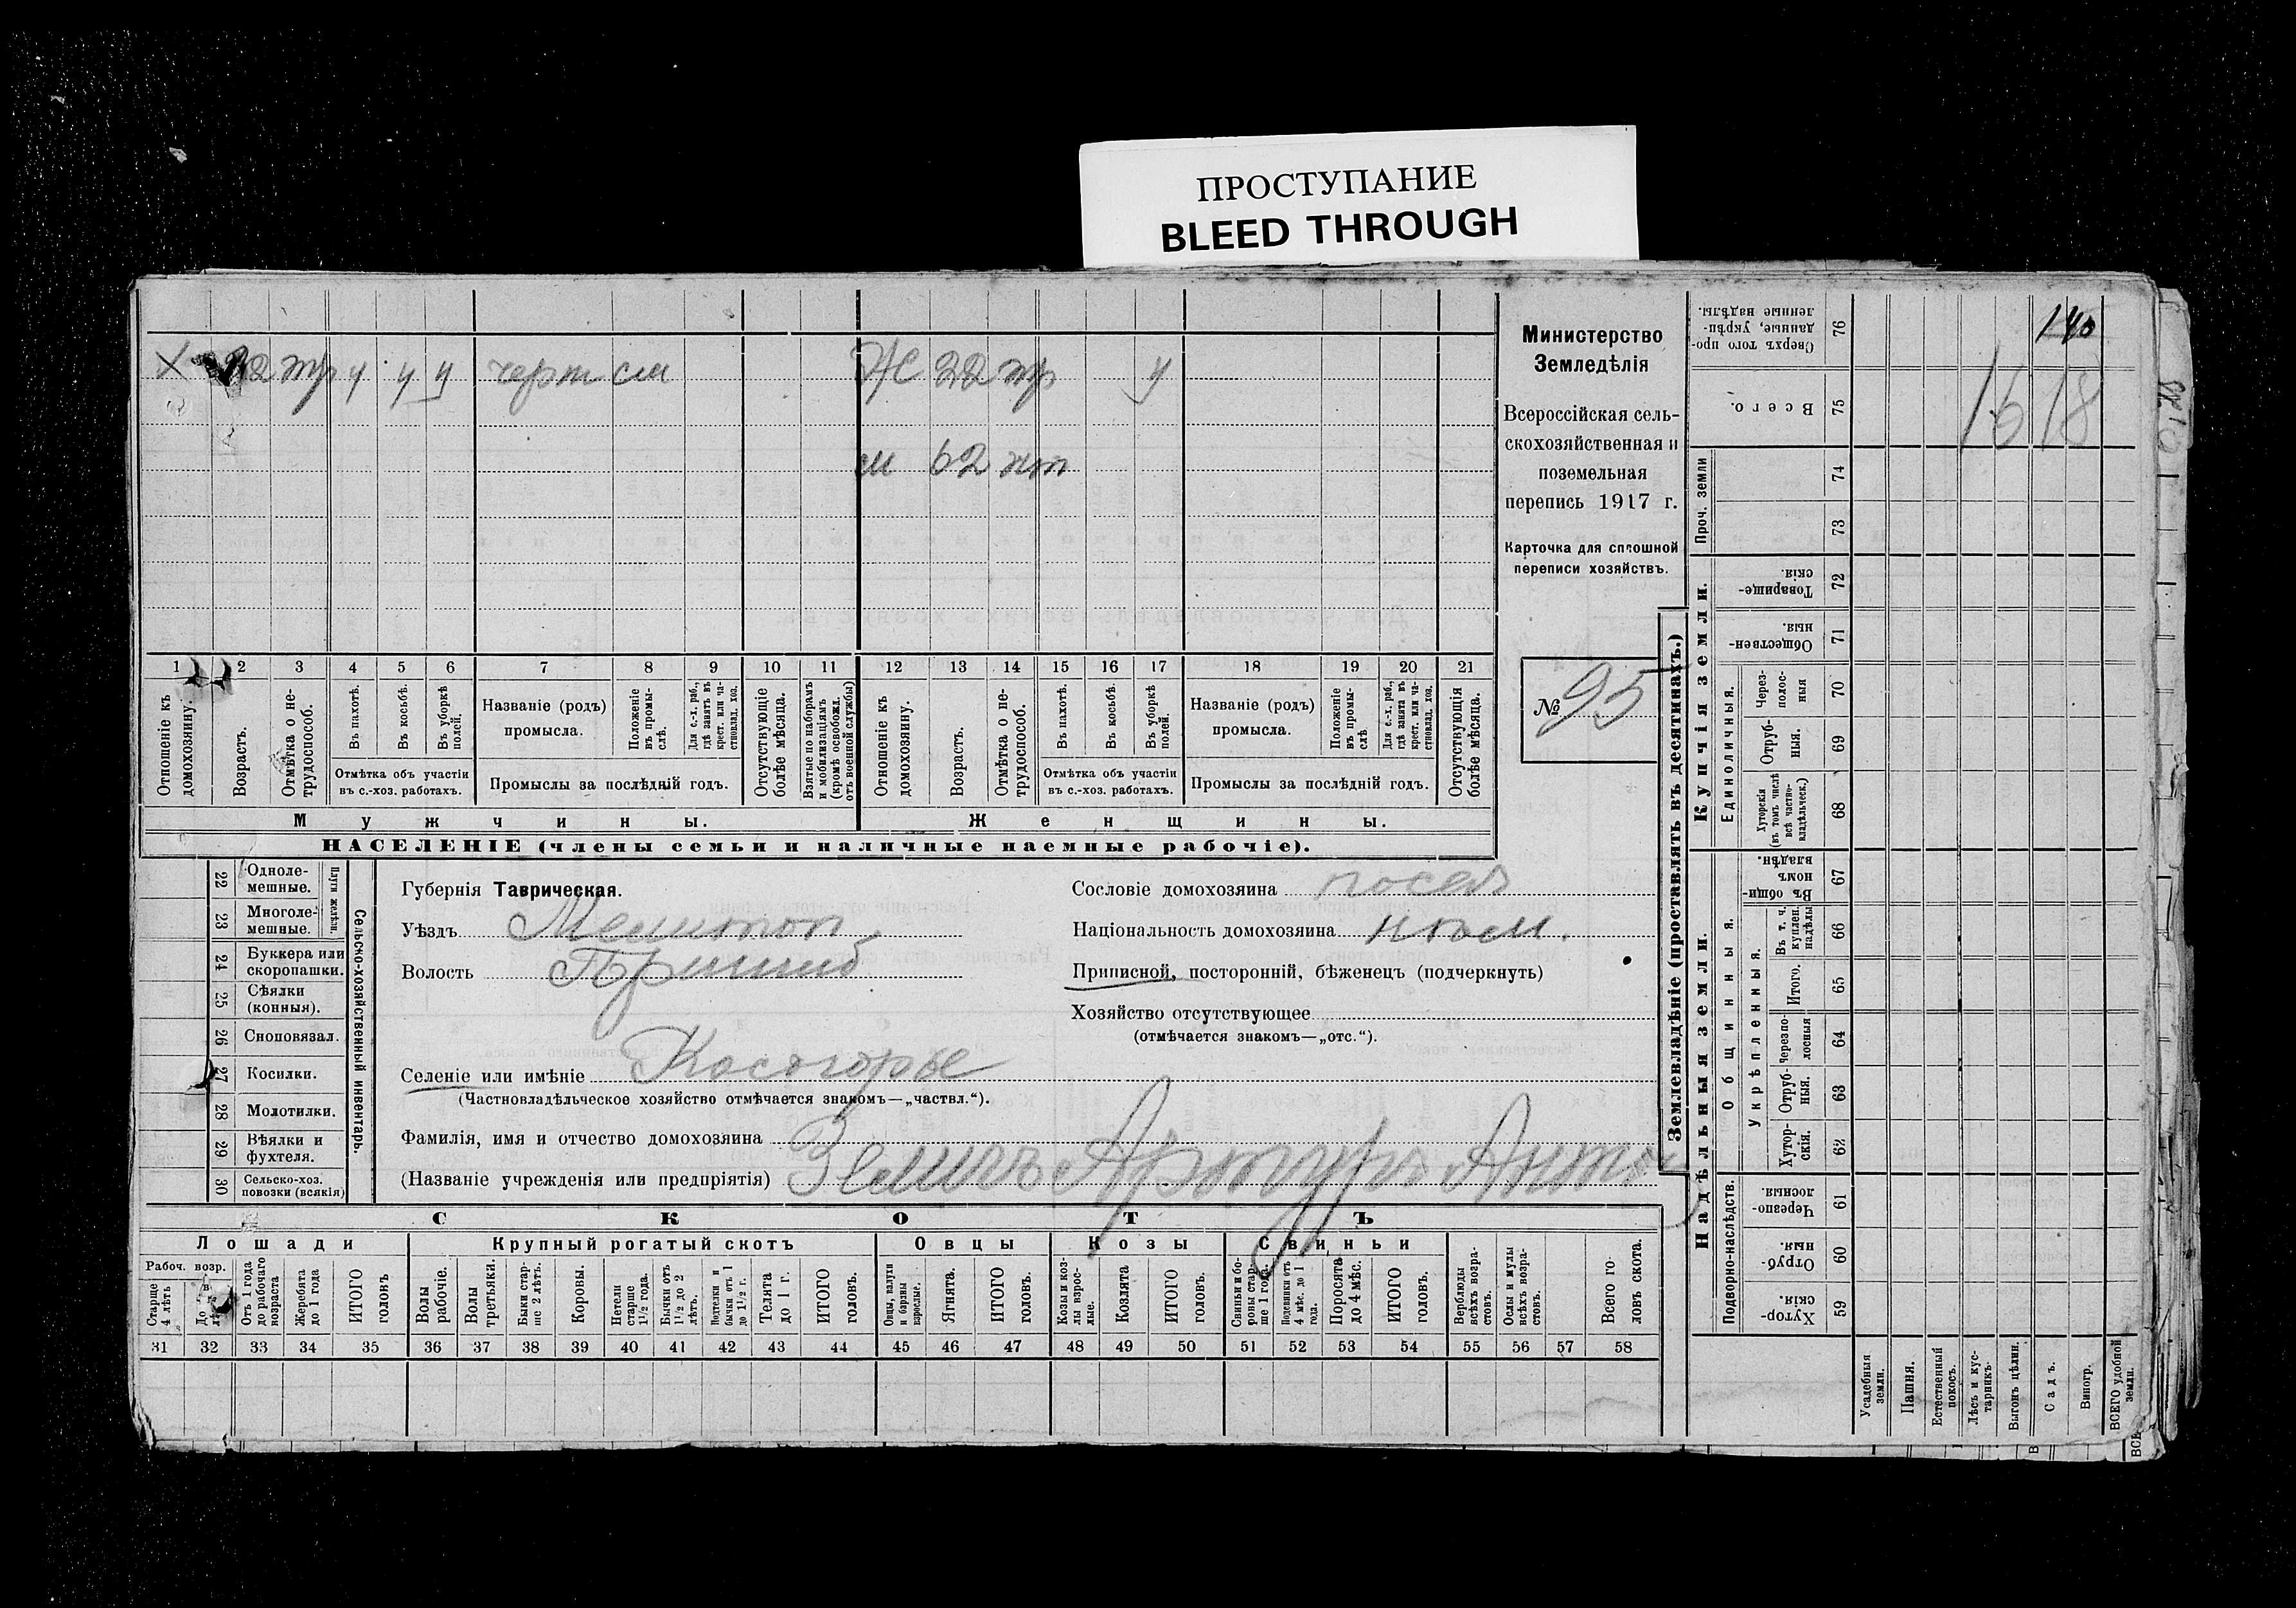 ПРОСТУПАНИЕ
BLEED THROUGH
Х 32 тр у у у черт см Ж 22 тр у
м 62 нт
1 2 3 4 5 6 7 8 9 10 11 12 13 14 15 16 17 18 19 20 21
Отношеніе къ домохозяину.
Возрастъ.
Отмѣтка о не-трудоспособ.
Въ пахотѣ.
Въ косьбѣ.
Въ уборкѣ полей.
Отмѣтка объ участіи въ с.-хоз. работахъ.
Названіе (родъ) промысла.
Положеніе въ промы-слѣ.
Для с.-х. раб., гдѣ занятъ въ крест. или ча-стновлад. хоз.
Промыслы за послѣдній годъ.
Отсутствующіе болѣе мѣсяца.
Взятые по наборамъ и мобилизаціямъ (кромѣ освобожд. отъ военной службы)
Отношеніе къ домохозяину.
Возрастъ.
Отмѣтка о не-трудоспособ.
Въ пахотѣ.
Въ косьбѣ.
Въ уборкѣ полей.
Отмѣтка объ участіи въ с.-хоз. работахъ.
Названіе (родъ) промысла.
Положеніе въ промы-слѣ.
Для с.-х. раб., гдѣ занята въ крест. или ча-стновлад. хоз.
Промыслы за послѣдній годъ.
Отсутствующія болѣе мѣсяца.
Мужчины. Женщины.
НАСЕЛЕНІЕ (члены семьи и наличные наемные рабочіе).
Министерство
Земледѣлія
Всероссійская сель-
скохозяйственная и
поземельная
перепись 1917 г.
Карточка для сплошной
переписи хозяйствъ.
№ 95
22 Одноле-мешные.
23 Многоле-мешные.
Плуги желѣзн.
24 Буккера или скоропашки.
25 Сѣялки (конныя).
26 Сноповязал.
27 Косилки.
28 Молотилки.
29 Вѣялки и фухтеля.
30 Сельско-хоз. повозки (всякія)
Сельско-хозяйственный инвентарь.
Губернія Таврическая.
Уѣздъ Мелитоп
Волость Пришиб
Селеніе или имѣніе Косогорье
(Частновладѣльческое хозяйство отмѣчается знакомъ—„частвл.“).
Сословіе домохозяина посел
Національность домохозяина нѣм.
Приписной, посторонній, бѣженецъ (подчеркнуть)
Хозяйство отсутствующее
(отмѣчается знакомъ—„отс.“).
Фамилія, имя и отчество домохозяина
(Названіе учрежденія или предпріятія) Артуръ
СКОТЪ
Лошади Крупный рогатый скотъ Овцы Козы Свиньи
Рабоч. возр.
Старше 4 лѣтъ
До
Отъ 1 года до рабочаго возраста
Жеребята до 1 года
ИТОГО головъ
Волы рабочіе.
Волы третьяки.
Быки стар-ше 2 лѣтъ.
Коровы.
Нетели старше 1½ года.
Бычки отъ 1½ до 2 лѣтъ.
Подтелки и бычки отъ 1 до 1½ г.
Телята до 1 г.
ИТОГО головъ.
Овцы, валухи и бараны взрослые.
Ягнята.
ИТОГО головъ.
Козы и коз-лы взрос-лые.
Козлята
ИТОГО головъ.
Свиньи и бо-ровы стар-ше 1 года.
Подсвинки отъ 4 мѣс. до 1 года.
Поросята до 4 мѣс.
ИТОГО головъ.
Верблюды всѣхъ возра-стовъ.
Ослы и мулы всѣхъ возра-стовъ.
Всего го-ловъ скота.
31 32 33 34 35 36 37 38 39 40 41 42 43 44 45 46 47 48 49 50 51 52 53 54 55 56 57 58
Землевладѣніе (проставлять въ десятинахъ.)
Сверхъ того про-данные, укрѣп-ленные надѣлы. 76
Всего. 75 16 18
Проч. земли 74 73
Купчія земли.
Товарище-скія. 72
Обществен-ныя. 71
Единоличныя.
Через-полос-ныя 70
Отруб-ныя. 69
Хуторскія (въ томъ числѣ всѣ частно-владѣльческ.) 68
Надѣльныя земли.
Общинныя.
Въ общи-номъ владѣн. 67
Укрѣпленныя.
Въ т. ч. куплен. надѣлы 66
Итого. 65
Черезпо-лосныя 64
Отруб-ныя. 63
Хутор-скія. 62
Подворно-наслѣдств.
Черезпо-лосныя. 61
Отруб-ныя. 60
Хутор-скія. 59
Усадебныя земли.
Пашня.
Естественный покосъ.
Лѣсъ и кус-тарникъ.
Выгонъ цѣлин.
Садъ.
Виногр.
ВСЕГО удобной земли.